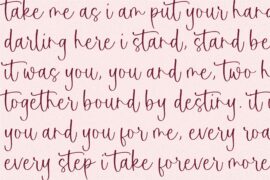 take me as i am put your han
darling here i stand, stand be
it was you, you and me, two h
together bound by destiny. it
you and you for me, every roa
every step i take forever more